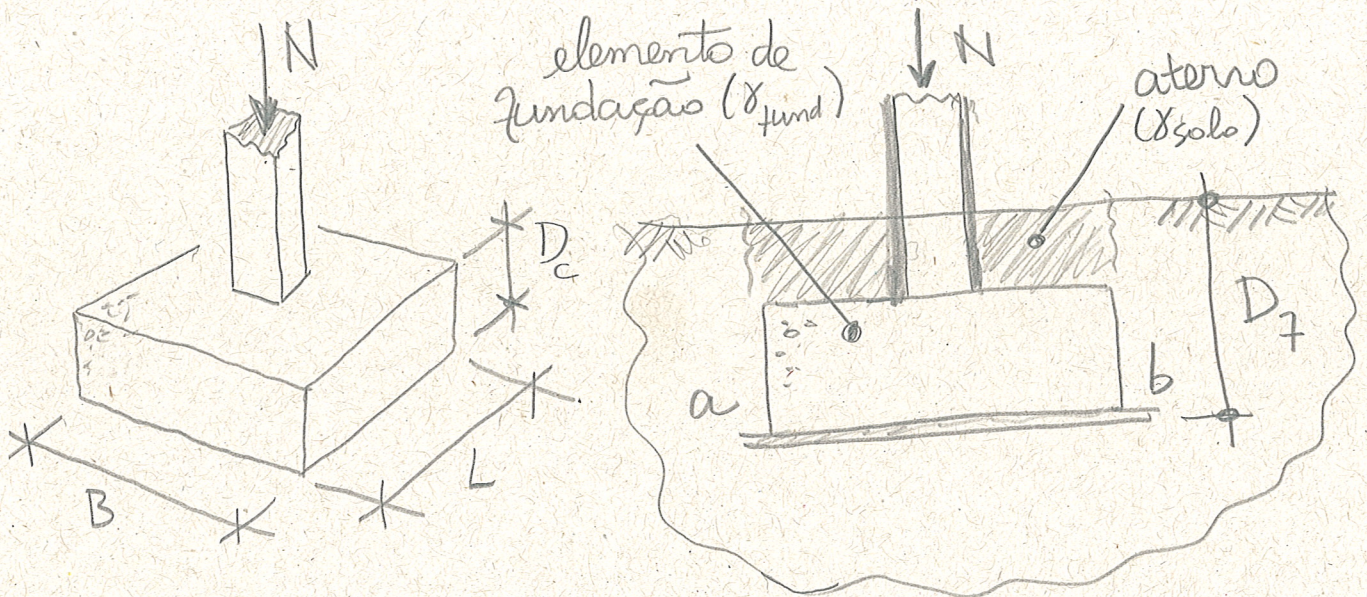 N
D_c
B
L
elemento de
fundação (γ_fund)
N
aterro
(γ_solo)
D_f
a
b